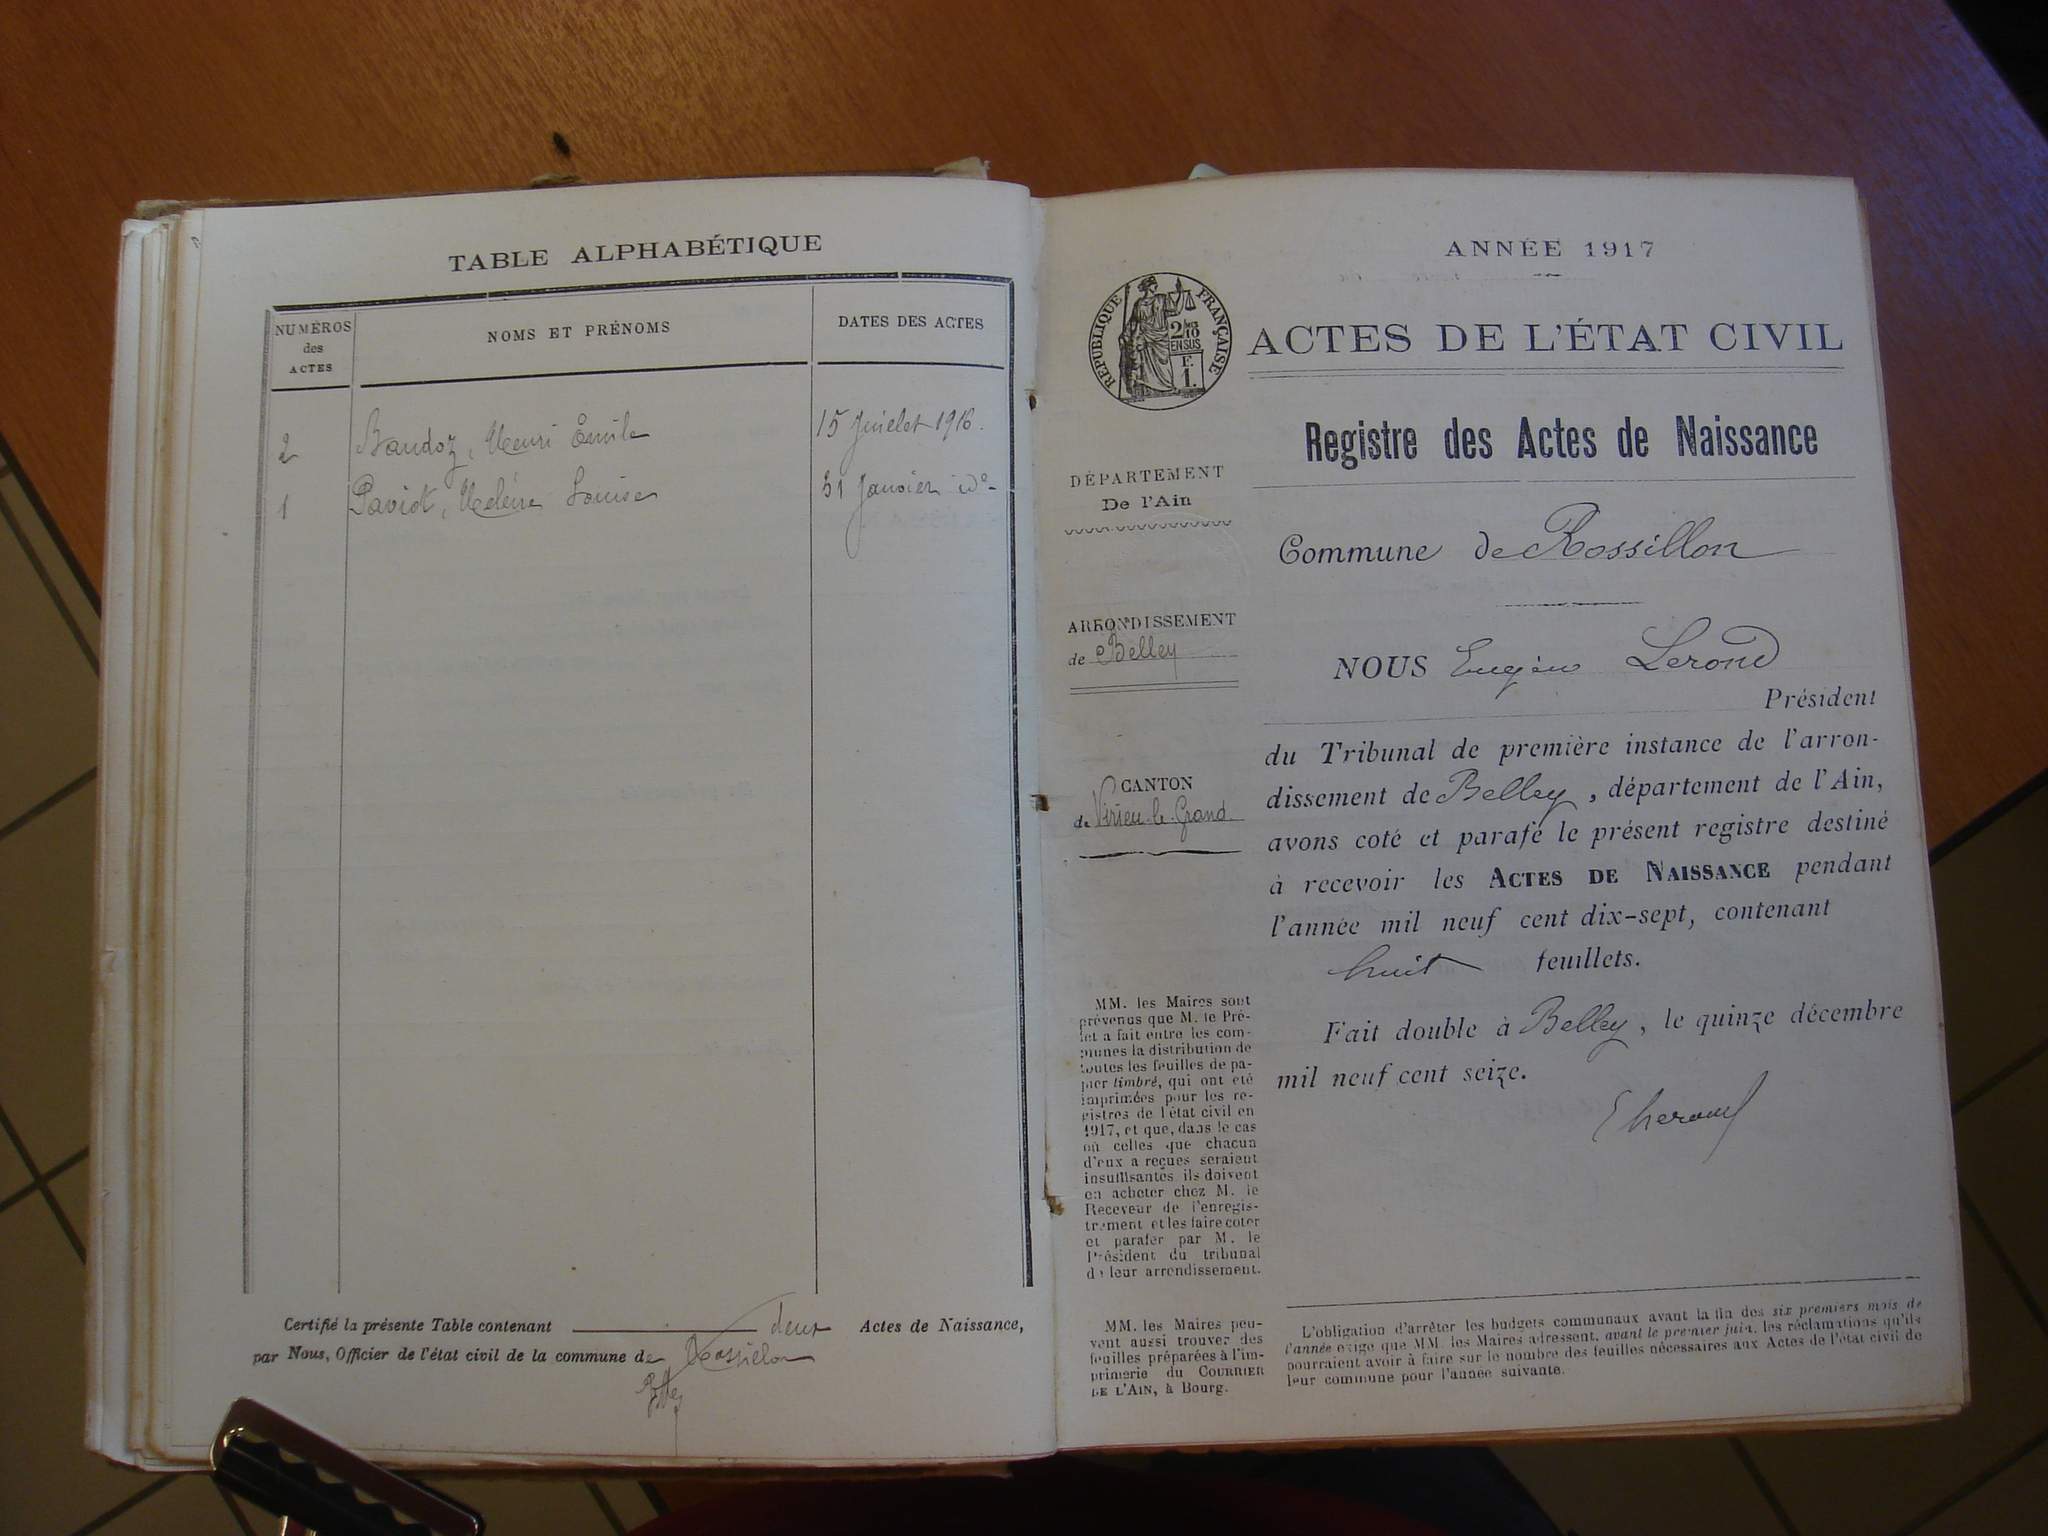 TABLE ALPHABÉTIQUE
NUMÉROS
des
ACTES
NOMS ET PRÉNOMS
DATES DES ACTES
2 Baudoz, Henri Émile 15 Juillet 1916.
1 Paviot, Hélène Louise 31 Janvier do
Certifié la présente Table contenant deux Actes de Naissance,
par Nous, Officier de l'état civil de la commune de Rossillon
ANNÉE 1917
RÉPUBLIQUE FRANÇAISE
2/10
EN SUS
F.
1.
ACTES DE L'ÉTAT CIVIL
Registre des Actes de Naissance
DÉPARTEMENT
De l'Ain
Commune de Rossillon
ARRONDISSEMENT
de Belley
NOUS Eugène Lerond
Président
du Tribunal de première instance de l'arron-
dissement de Belley, département de l'Ain,
avons coté et parafé le présent registre destiné
à recevoir les ACTES DE NAISSANCE pendant
l'année mil neuf cent dix-sept, contenant
huit feuillets.
Fait double à Belley, le quinze décembre
mil neuf cent seize.
CANTON
de Virieu-le-Grand
MM. les Maires sont
prévenus que M. le Pré-
fet a fait entre les com-
munes la distribution de
toutes les feuilles de pa-
pier timbré, qui ont été
imprimées pour les re-
gistres de l'état civil en
1917, et que, dans le cas
où celles que chacun
d'eux a reçues seraient
insuffisantes ils doivent
en acheter chez M. le
Receveur de l'enregis-
trement et les faire coter
et parafer par M. le
Président du tribunal
de leur arrondissement.
MM. les Maires peu-
vent aussi trouver des
feuilles préparées à l'im-
primerie du COURRIER
DE L'AIN, à Bourg.
L'obligation d'arrêter les budgets communaux avant la fin des six premiers mois de
l'année exige que MM. les Maires adressent, avant le premier juin, les réclamations qu'ils
pourraient avoir à faire sur le nombre des feuilles nécessaires aux Actes de l'état civil de
leur commune pour l'année suivante.